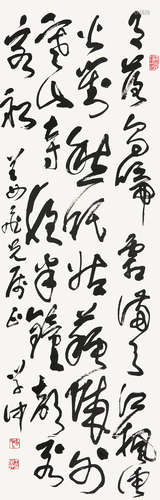 月落烏啼霜滿天江楓漁
火對愁眠姑蘇城外
寒山寺夜半鐘聲到
客船
兄屬正 學仲